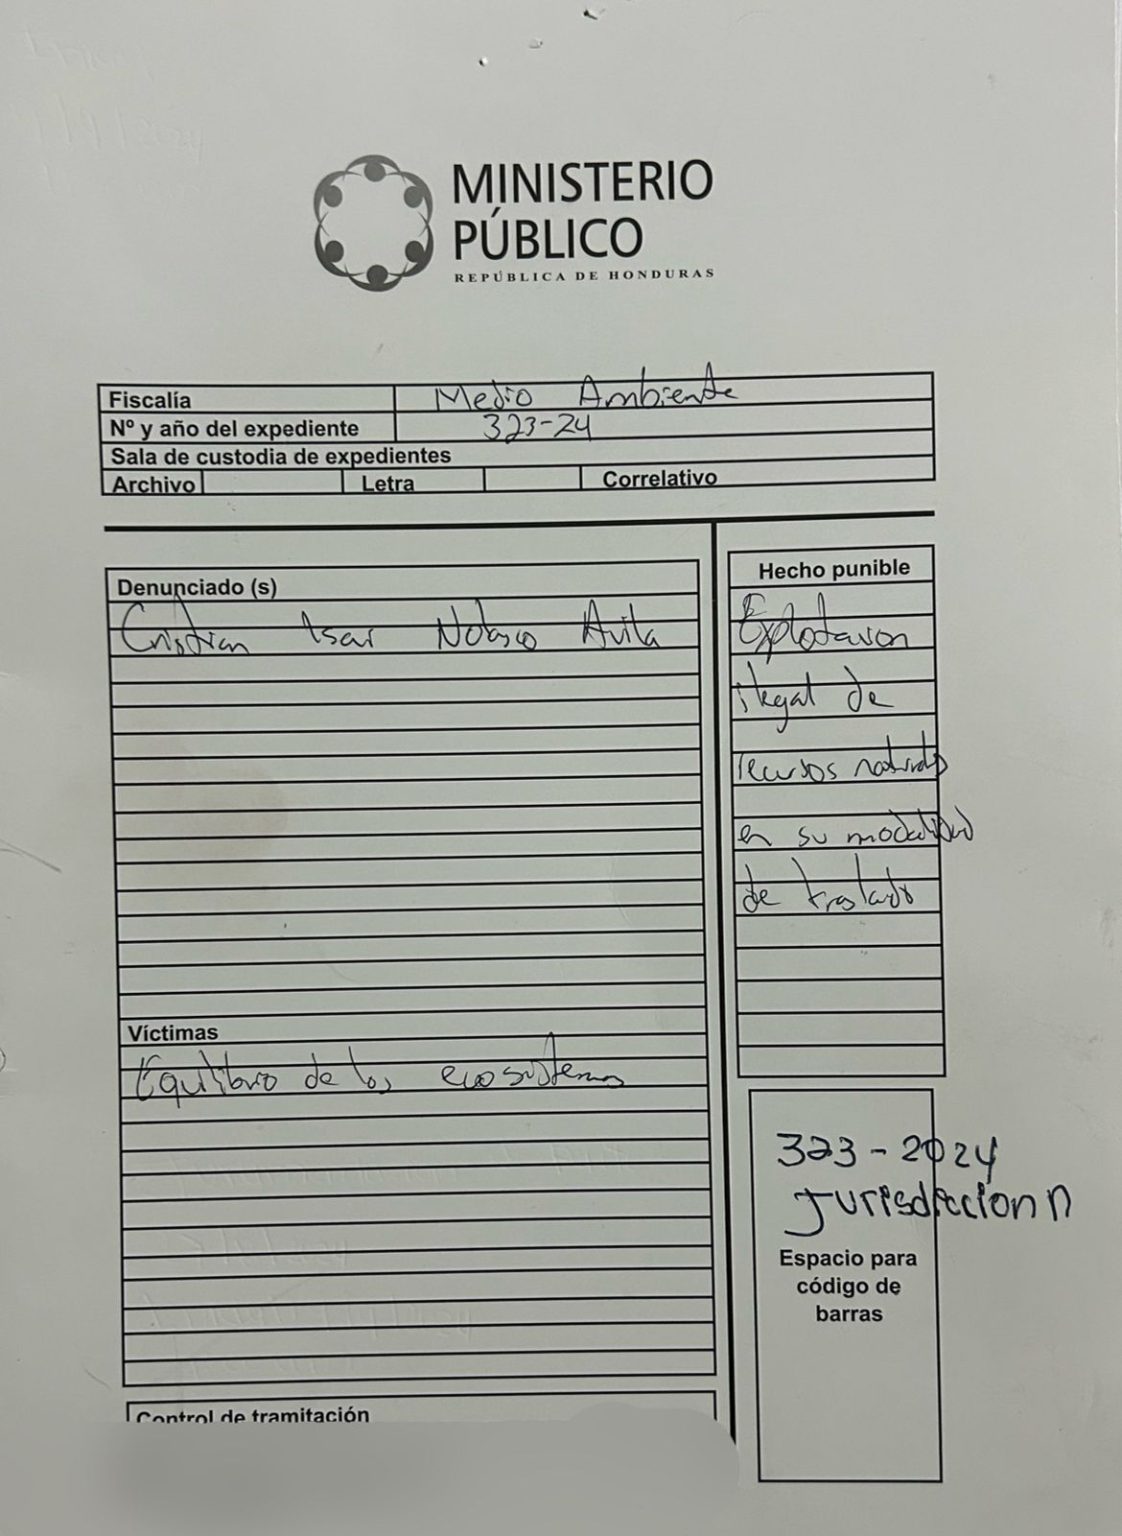 MINISTERIO
PÚBLICO
REPÚBLICA DE HONDURAS
Fiscalía Medio Ambiente
Nº y año del expediente 323-24
Sala de custodia de expedientes
Archivo Letra Correlativo
Denunciado (s)
Cristian Isai Nolasco Avila
Hecho punible
Explotavon
ilegal de
recursos naturales
en su modalidad
de traslado
Víctimas
Equilibrio de los ecosistemas
323-2024
Jurisdiccion n
Espacio para
código de
barras
Control de tramitación